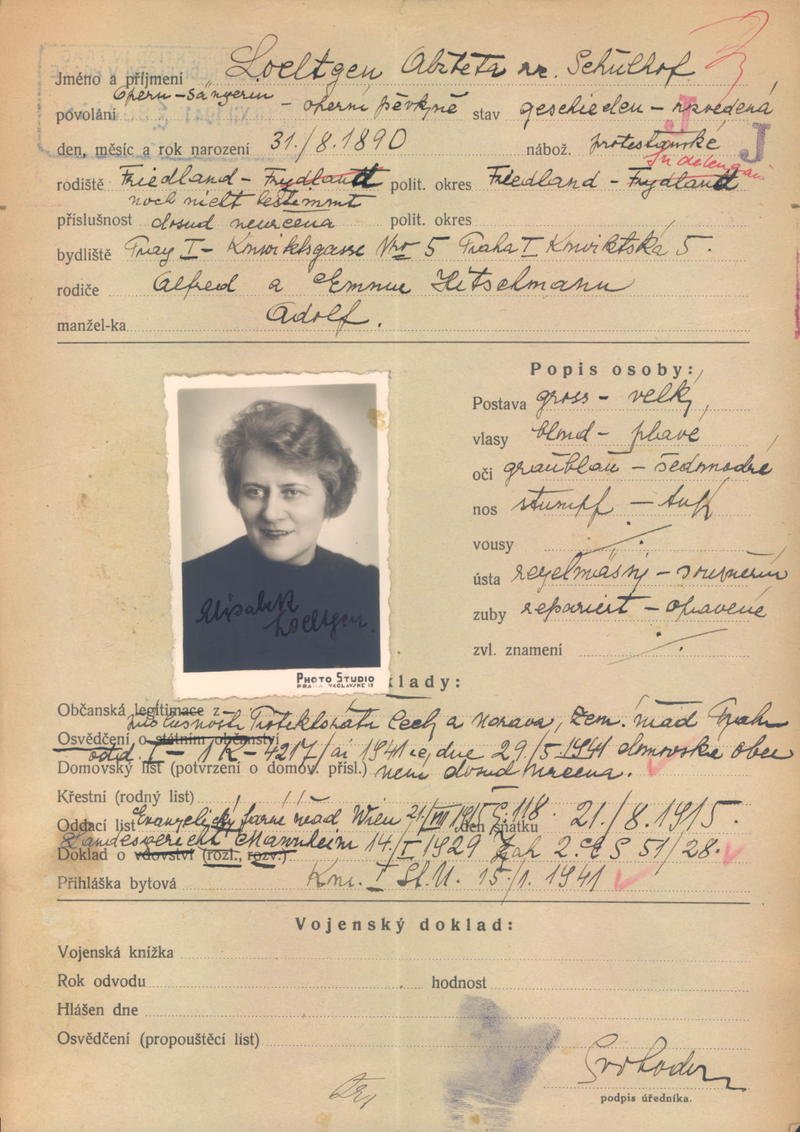 Jméno a příjmení Loeltgen Alzbeta
Opern-Sängerin
povolání - operní pěvkyně stav geschieden - rozvedená
den, měsíc a rok narození 31./8.1890 nábož. protestantské
J
J
rodiště Friedland - Frydlant polit. okres Friedland - Frydlant
noch nicht bestimmt
příslušnost dosud neurčena polit. okres
bydliště Prag I - Konviktsgasse Nro 5 Praha I Konviktská 5.
rodiče Alfred a
manžel-ka Adolf.
Popis osoby:
Postava gross - velký
vlasy blond - plavé
oči graublau - šedomodré
nos stumpf - tupý
vousy
ústa regelmässig - souměrná
zuby repariert - opravené
zvl. znamení
Elisabeth
Loeltgen.
PHOTO STUDIO
klady:
Občanská legitimace z
příslušnosti Protektorátu Čech a Morava, zem. úřad Praha
Osvědčení o státním občanství
odd. I - 1 R - 4217/ai 1941 ze dne 29/5-1941 domovská obec
Domovský list (potvrzení o domov. přísl.) není dosud určena.
Křestní (rodný list)
Oddací list Evangelický farní úřad Wien 21/VIII 1915 118. den sňatku 21./8.1915.
Landesgericht Mannheim 14/I 1929 2. 51/28.
Doklad o vdovství (rozl., rozv.)
Přihláška bytová 15/1. 1941
Vojenský doklad:
Vojenská knížka
Rok odvodu hodnost
Hlášen dne
Osvědčení (propouštěcí list)
Svoboda
podpis úředníka.